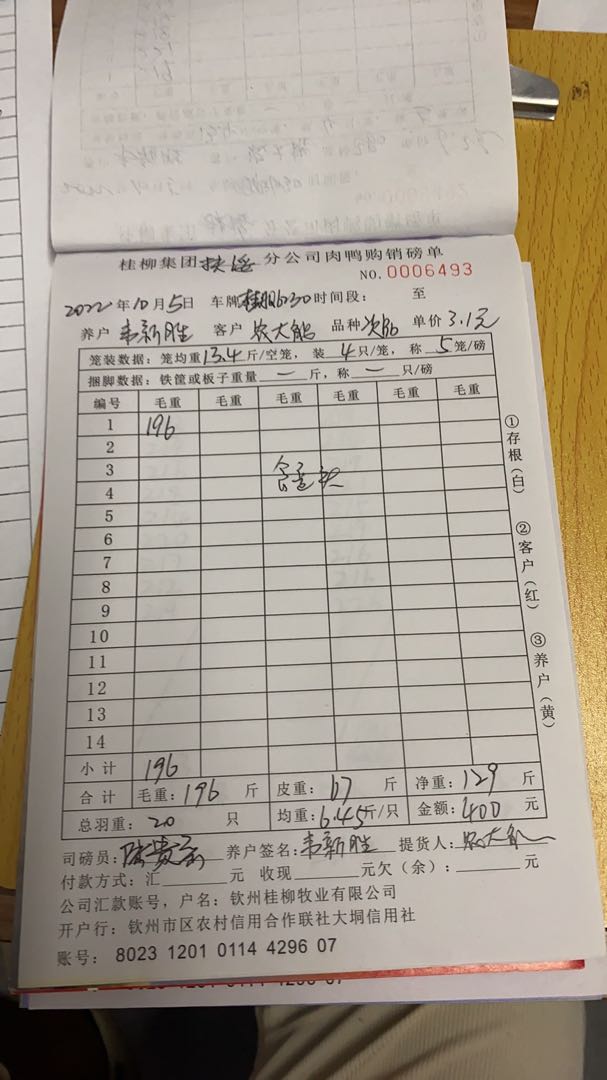 桂柳集团扶绥分公司肉鸭购销磅单
NO.0006493
2022年10月5日 车牌 时间段： 至
养户 韦新胜 客户 农大能 品种 次品 单价 3.1元
笼装数据：笼均重13.4斤/空笼，装 4 只/笼，称 5 笼/磅
捆脚数据：铁筐或板子重量 一 斤，称 一 只/磅
编号 毛重 毛重 毛重 毛重 毛重 毛重
1 196
2
3
4
5
6
7
8
9
10
11
12
13
14
小计 196
合计 毛重：196 斤 皮重：67 斤 净重：129 斤
总羽重：20 只 均重：6.45斤/只 金额：400 元
司磅员： 养户签名：韦新胜 提货人：农大能
付款方式：汇 元 收现 元欠（余）： 元
公司汇款账号，户名：钦州桂柳牧业有限公司
开户行：钦州市区农村信用合作联社大垌信用社
账号：8023 1201 0114 4296 07
①存根（白）
②客户（红）
③养户（黄）